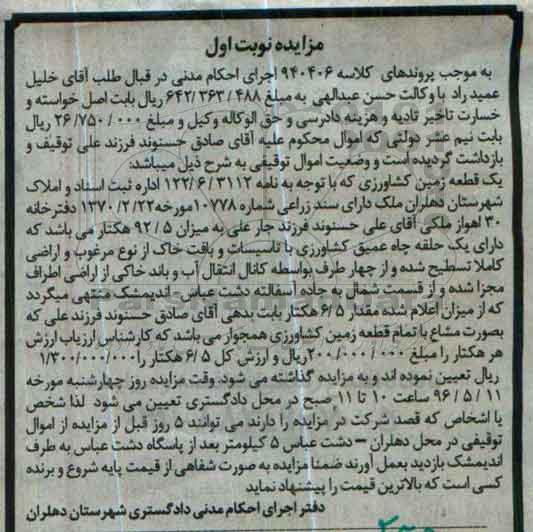 مزایده نوبت اول
به موجب پروندهای کلاسه ۹۴۰۴۰۶ اجرای احکام مدنی در قبال طلب آقای خلیل
عمید راد با وکالت حسن عبدالهی به مبلغ ۶۴۲/۳۶۳/۴۸۸ ریال بابت اصل خواسته و
خسارت تاخیر تادیه و هزینه دادرسی و حق الوکاله وکیل و مبلغ ۲۶/۷۵۰/۰۰۰ ریال
بابت نیم عشر دولتی که اموال محکوم علیه آقای صادق حسنوند فرزند علی توقیف و
بازداشت گردیده است و وضعیت اموال توقیفی به شرح ذیل میباشد:
یک قطعه زمین کشاورزی که با توجه به نامه ۱۲۲/۶/۳۱۱۲ اداره ثبت اسناد و املاک
شهرستان دهلران ملک دارای سند زراعی شماره ۱۰۷۷۸مورخه۱۳۷۰/۲/۲۲ دفترخانه
۳۰ اهواز ملکی آقای علی حسنوند فرزند جار علی به میزان ۹۲/۵ هکتار می باشد که
دارای یک حلقه چاه عمیق کشاورزی با تاسیسات و بافت خاک از نوع مرغوب و اراضی
کاملا تسطیح شده و از چهار طرف بواسطه کانال انتقال آب و باند خاکی از اراضی اطراف
مجزا شده و از قسمت شمال به جاده آسفالته دشت عباس - اندیمشک منتهی میگردد
که از میزان اعلام شده مقدار ۶/۵ هکتار بابت بدهی آقای صادق حسنوند فرزند علی که
بصورت مشاع با تمام قطعه زمین کشاورزی همجوار می باشد که کارشناس ارزیاب ارزش
هر هکتار را مبلغ ۲۰۰/۰۰۰/۰۰۰ریال و ارزش کل ۶/۵ هکتار را ۱/۳۰۰/۰۰۰/۰۰۰
ریال تعیین نموده اند و به مزایده گذاشته می شود. وقت مزایده روز چهارشنبه مورخه
۹۶/۵/۱۱ ساعت ۱۰ تا ۱۱ صبح در محل دادگستری تعیین می شود لذا شخص
یا اشخاص که قصد شرکت در مزایده را دارند می توانند ۵ روز قبل از مزایده از اموال
توقیفی در محل دهلران – دشت عباس ۵ کیلومتر بعد از پاسگاه دشت عباس به طرف
اندیمشک بازدید بعمل آورند ضمنا مزایده به صورت شفاهی از قیمت پایه شروع و برنده
کسی است که بالاترین قیمت را پیشنهاد نماید
دفتر اجرای احکام مدنی دادگستری شهرستان دهلران